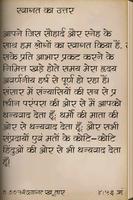 स्वागत का उत्तर
आपने जिस सौहार्द और स्नेह के
साथ हम लोगों का स्वागत किया हैं, उ
सके प्रति आभार प्रकट करने के
निमित्त खड़े होते समय मेरा ह्रदय
अवर्णनीय हर्ष से पूर्ण हो रहा हैं।
संसार में संन्यासियों की सब से प्रा
चीन परंपरा की ओर से मैं आपको
धन्यवाद देता हूँ; धर्मों की माता की
ओर से धन्यवाद देता हूँ; और सभी
संप्रदायों एवं मतों के कोटि-कोटि
हिंदूओं की ओर से भी धन्यवाद देता
हूँ।